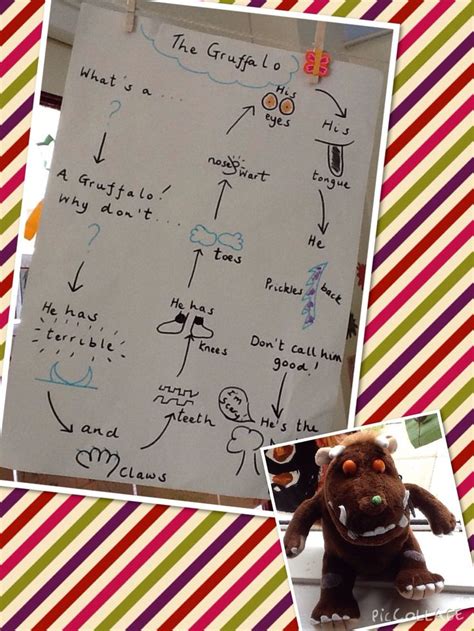 The Gruffalo
What's a ....
?
A Gruffalo!
Why don't ....
?
He has
terrible
and
claws
teeth
He has
knees
toes
nose wart
His
eyes
His
tongue
He
Prickles back
Don't call him
good!
He's the
I'm
scary!
PIC COLLAGE